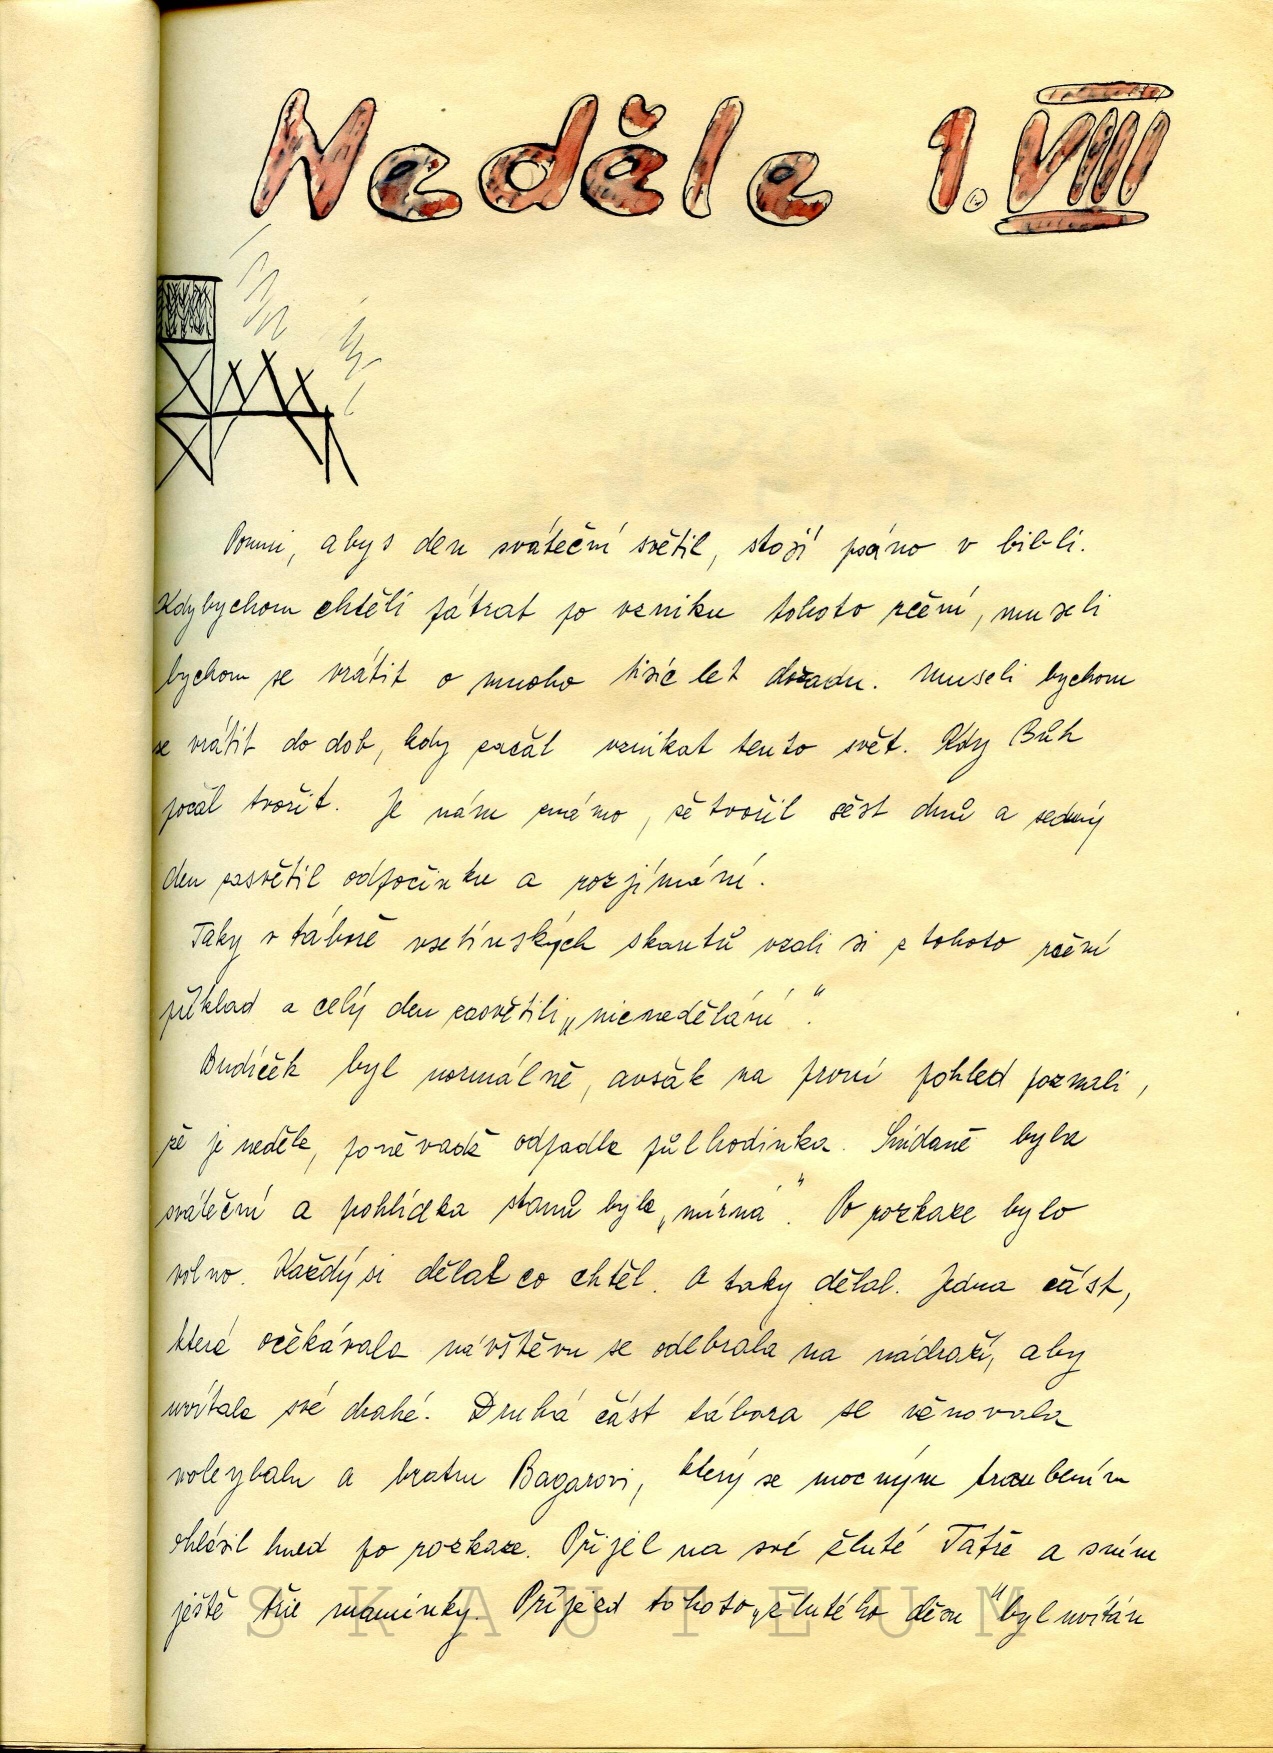 Neděle 1. VIII
Pomni, abys den sváteční světil, stojí psáno v bibli.
Kdybychom chtěli pátrat po vzniku tohoto rčení, museli
bychom se vrátit o mnoho tisíc let dozadu. Museli bychom
se vrátit do dob, kdy začal vznikat tento svět. Kdy Bůh
počal tvořit. Je nám známo, že tvořil šest dnů a sedmý
den zasvětil odpočinku a rozjímání.
Taky v táboře vsetínských skautů vzali si z tohoto rčení
příklad a celý den zasvětili „nicnedělání“.
Budíček byl normálně, avšak na první pohled poznali,
že je neděle, poněvadž odpadla půlhodinka. Snídaně byla
sváteční a pohlídka stanů byla „mírná“. Po rozkaze bylo
volno. Každý si dělal co chtěl. A taky dělal. Jedna část,
která očekávala návštěvu se odebrala na nádraží, aby
uvítala své drahé. Druhá část tábora se věnovala
voleybalu a bratru Bagarovi, který se mocným troubením
ohlásil hned po rozkaze. Přijel na své žluté Tatře a s ním
ještě tři maminky. Příjezd tohoto „žlutého děsu“ byl uvítán
SKAUTEUM